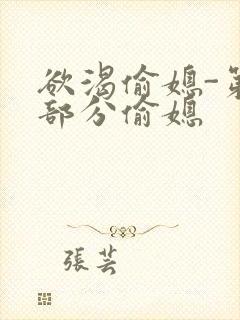 欲渴偷媳-第
部分偷媳
張芸